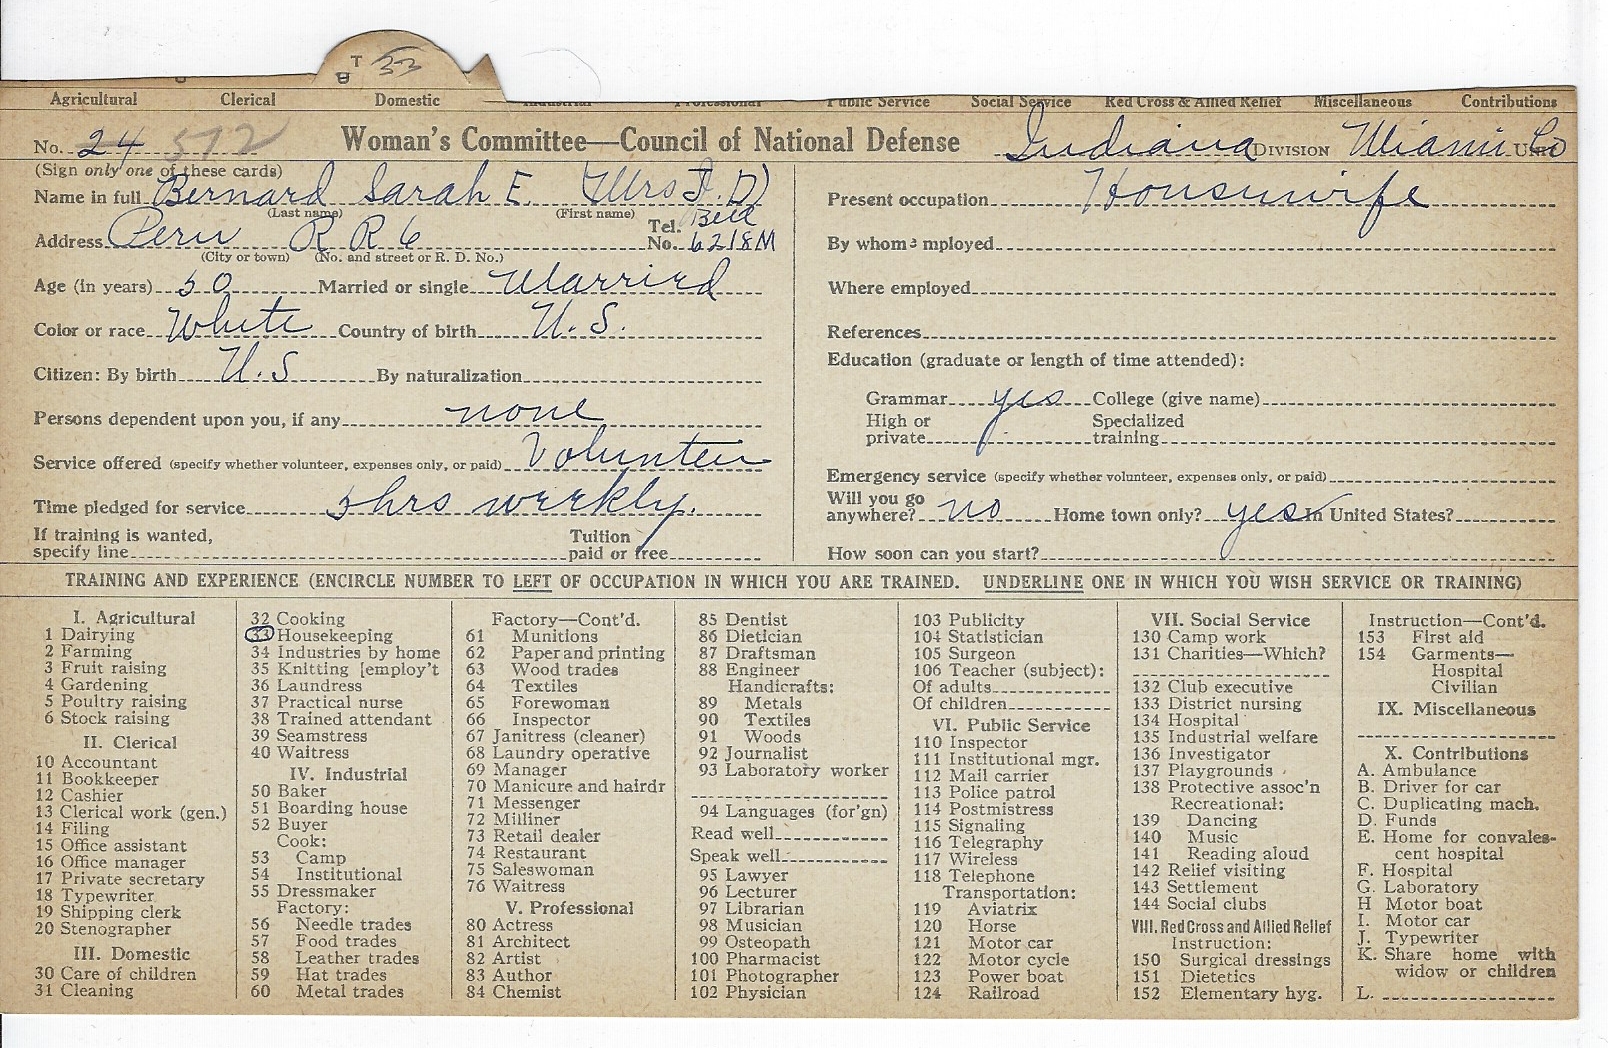 T 33
8
Agricultural Clerical Domestic Industrial Professional Public Service Social Service Red Cross & Allied Relief Miscellaneous Contributions
No. 24 572 Woman's Committee—Council of National Defense Indiana DIVISION Miami UNIT Co
(Sign only one of these cards)
Name in full Bernard Sarah E. (Mrs F. D)
(Last name) (First name)
Address Peru R R 6 Tel. No. Bell 6218M
(City or town) (No. and street or R. D. No.)
Age (in years) 50 Married or single Married
Color or race White Country of birth U. S.
Citizen: By birth U. S By naturalization
Persons dependent upon you, if any none
Service offered (specify whether volunteer, expenses only, or paid) Volunteer
Time pledged for service 3 hrs weekly.
If training is wanted, specify line Tuition paid or free
Present occupation Housewife
By whom employed
Where employed
References
Education (graduate or length of time attended):
Grammar yes College (give name)
High or private Specialized training
Emergency service (specify whether volunteer, expenses only, or paid)
Will you go anywhere? no Home town only? yes In United States?
How soon can you start?
TRAINING AND EXPERIENCE (ENCIRCLE NUMBER TO LEFT OF OCCUPATION IN WHICH YOU ARE TRAINED. UNDERLINE ONE IN WHICH YOU WISH SERVICE OR TRAINING)
I. Agricultural
1 Dairying
2 Farming
3 Fruit raising
4 Gardening
5 Poultry raising
6 Stock raising
II. Clerical
10 Accountant
11 Bookkeeper
12 Cashier
13 Clerical work (gen.)
14 Filing
15 Office assistant
16 Office manager
17 Private secretary
18 Typewriter
19 Shipping clerk
20 Stenographer
III. Domestic
30 Care of children
31 Cleaning
32 Cooking
33 Housekeeping
34 Industries by home
35 Knitting [employ't
36 Laundress
37 Practical nurse
38 Trained attendant
39 Seamstress
40 Waitress
IV. Industrial
50 Baker
51 Boarding house
52 Buyer
Cook:
53 Camp
54 Institutional
55 Dressmaker
Factory:
56 Needle trades
57 Food trades
58 Leather trades
59 Hat trades
60 Metal trades
Factory—Cont'd.
61 Munitions
62 Paper and printing
63 Wood trades
64 Textiles
65 Forewoman
66 Inspector
67 Janitress (cleaner)
68 Laundry operative
69 Manager
70 Manicure and hairdr
71 Messenger
72 Milliner
73 Retail dealer
74 Restaurant
75 Saleswoman
76 Waitress
V. Professional
80 Actress
81 Architect
82 Artist
83 Author
84 Chemist
85 Dentist
86 Dietician
87 Draftsman
88 Engineer
Handicrafts:
89 Metals
90 Textiles
91 Woods
92 Journalist
93 Laboratory worker
94 Languages (for'gn)
Read well
Speak well
95 Lawyer
96 Lecturer
97 Librarian
98 Musician
99 Osteopath
100 Pharmacist
101 Photographer
102 Physician
103 Publicity
104 Statistician
105 Surgeon
106 Teacher (subject):
Of adults
Of children
VI. Public Service
110 Inspector
111 Institutional mgr.
112 Mail carrier
113 Police patrol
114 Postmistress
115 Signaling
116 Telegraphy
117 Wireless
118 Telephone
Transportation:
119 Aviatrix
120 Horse
121 Motor car
122 Motor cycle
123 Power boat
124 Railroad
VII. Social Service
130 Camp work
131 Charities—Which?
132 Club executive
133 District nursing
134 Hospital
135 Industrial welfare
136 Investigator
137 Playgrounds
138 Protective assoc'n
Recreational:
139 Dancing
140 Music
141 Reading aloud
142 Relief visiting
143 Settlement
144 Social clubs
VIII. Red Cross and Allied Relief
Instruction:
150 Surgical dressings
151 Dietetics
152 Elementary hyg.
Instruction—Cont'd.
153 First aid
154 Garments—
Hospital
Civilian
IX. Miscellaneous
X. Contributions
A. Ambulance
B. Driver for car
C. Duplicating mach.
D. Funds
E. Home for convales-
cent hospital
F. Hospital
G. Laboratory
H Motor boat
I. Motor car
J. Typewriter
K. Share home with
widow or children
L.